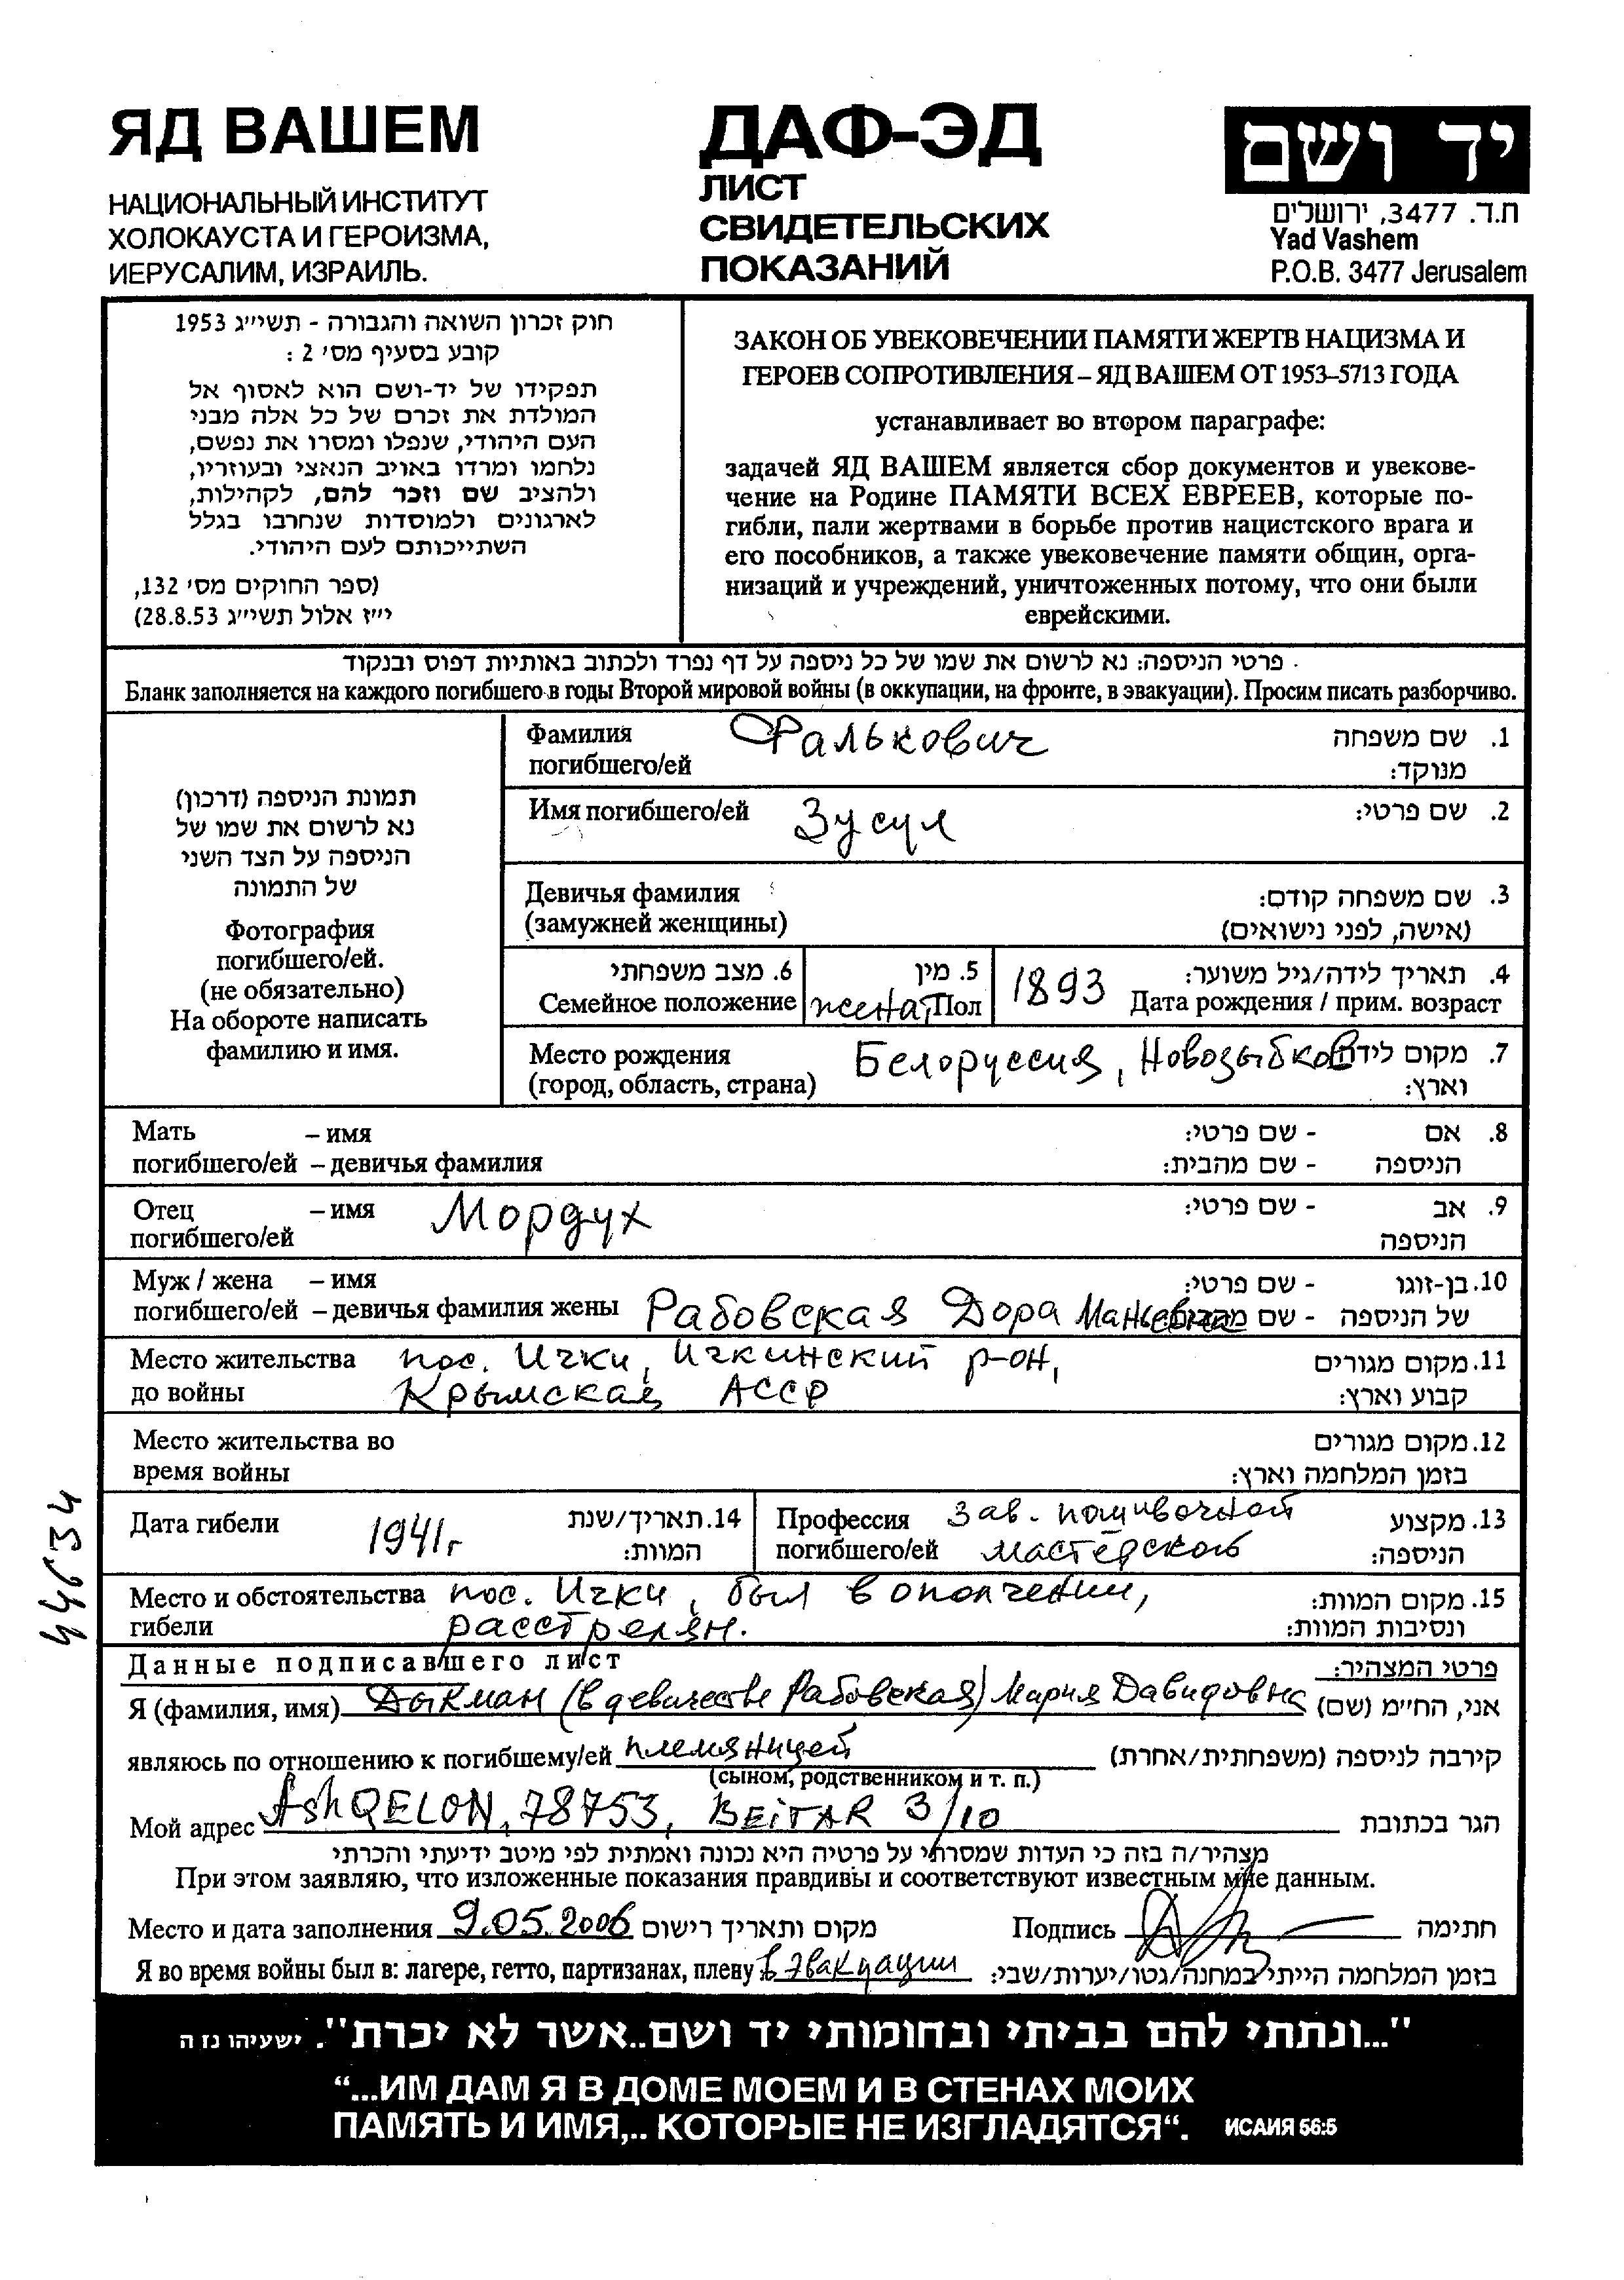 ЯД ВАШЕМ
НАЦИОНАЛЬНЫЙ ИНСТИТУТ
ХОЛОКАУСТА И ГЕРОИЗМА,
ИЕРУСАЛИМ, ИЗРАИЛЬ.
ДАФ-ЭД
ЛИСТ
СВИДЕТЕЛЬСКИХ
ПОКАЗАНИЙ
יד ושם
ת.ד. 3477, ירושלים
Yad Vashem
P.O.B. 3477 Jerusalem
חוק זכרון השואה והגבורה - תשי״ג 1953
קובע בסעיף מס׳ 2 :
תפקידו של יד-ושם הוא לאסוף אל
המולדת את זכרם של כל אלה מבני
העם היהודי, שנפלו ומסרו את נפשם,
נלחמו ומרדו באויב הנאצי ובעוזריו,
ולהציב שם וזכר להם, לקהילות,
לארגונים ולמוסדות שנחרבו בגלל
השתייכותם לעם היהודי.
(ספר החוקים מס׳ 132,
י״ז אלול תשי״ג 28.8.53)
ЗАКОН ОБ УВЕКОВЕЧЕНИИ ПАМЯТИ ЖЕРТВ НАЦИЗМА И
ГЕРОЕВ СОПРОТИВЛЕНИЯ – ЯД ВАШЕМ ОТ 1953–5713 ГОДА
устанавливает во втором параграфе:
задачей ЯД ВАШЕМ является сбор документов и увекове-
чение на Родине ПАМЯТИ ВСЕХ ЕВРЕЕВ, которые по-
гибли, пали жертвами в борьбе против нацистского врага и
его пособников, а также увековечение памяти общин, орга-
низаций и учреждений, уничтоженных потому, что они были
еврейскими.
פרטי הניספה: נא לרשום את שמו של כל ניספה על דף נפרד ולכתוב באותיות דפוס ובנקוד
Бланк заполняется на каждого погибшего в годы Второй мировой войны (в оккупации, на фронте, в эвакуации). Просим писать разборчиво.
תמונת הניספה (דרכון)
נא לרשום את שמו של
הניספה על הצד השני
של התמונה
Фотография
погибшего/ей.
(не обязательно)
На обороте написать
фамилию и имя.
Фамилия Фалькович 1. שם משפחה
погибшего/ей מנוקד:
Имя погибшего/ей Зусул 2. שם פרטי:
Девичья фамилия 3. שם משפחה קודם:
(замужней женщины) (אישה, לפני נישואים)
6. מצב משפחתי 5. מין 4. תאריך לידה/גיל משוער:
Семейное положение женат Пол 1893 Дата рождения / прим. возраст
Место рождения Белоруссия, Новозыбков 7. מקום לידה
(город, область, страна) וארץ:
Мать – имя 8. אם - שם פרטי:
погибшего/ей – девичья фамилия הניספה - שם מהבית:
Отец – имя Мордух 9. אב - שם פרטי:
погибшего/ей הניספה
Муж / жена – имя 10. בן-זוגו - שם פרטי:
погибшего/ей – девичья фамилия жены Рабовская Дора Маньевна של הניספה - שם
Место жительства пос. Ички, Ичкинский р-он, 11. מקום מגורים
до войны Крымская АССР קבוע וארץ:
Место жительства во 12. מקום מגורים
время войны בזמן המלחמה וארץ:
Дата гибели 1941г 14. תאריך/שנת המוות:
Профессия зав. пошивочной 13. מקצוע
погибшего/ей мастерской הניספה:
Место и обстоятельства пос. Ички, был в ополчении, 15. מקום המוות:
гибели расстрелян. ונסיבות המוות:
Данные подписавшего лист פרטי המצהיר:
Я (фамилия, имя) Дыкман (в девичестве Рабовская) Мария Давидовна אני, החי״מ (שם)
являюсь по отношению к погибшему/ей племяницей קירבה לניספה (משפחתית/אחרת)
(сыном, родственником и т. п.)
Мой адрес AshQELON, 78753, BEiTAR 3/10 הגר בכתובת
מצהיר/ה בזה כי העדות שמסרתי על פרטיה היא נכונה ואמתית לפי מיטב ידיעתי והכרתי
При этом заявляю, что изложенные показания правдивы и соответствуют известным мне данным.
Место и дата заполнения 9.05.2006 מקום ותאריך רישום Подпись חתימה
Я во время войны был в: лагере, гетто, партизанах, плену в эвакуации בזמן המלחמה הייתי במחנה/גטו/יערות/שבי:
44634
"...ונתתי להם בביתי ובחומותי יד ושם..אשר לא יכרת". ישעיהו נז ה
“...ИМ ДАМ Я В ДОМЕ МОЕМ И В СТЕНАХ МОИХ
ПАМЯТЬ И ИМЯ,.. КОТОРЫЕ НЕ ИЗГЛАДЯТСЯ“. ИСАИЯ 56:5